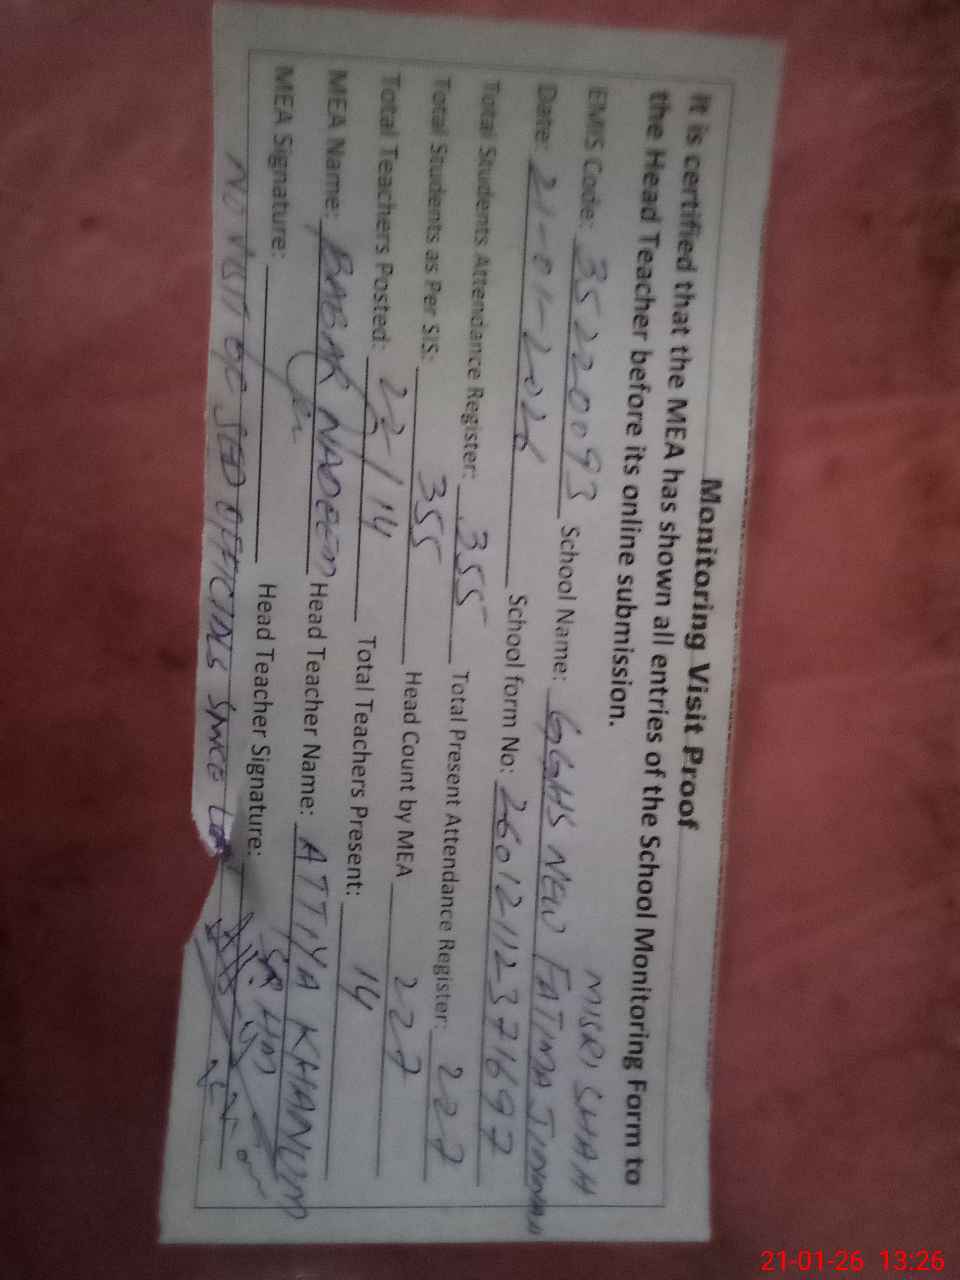 Monitoring Visit Proof
It is certified that the MEA has shown all entries of the School Monitoring Form to
the Head Teacher before its online submission.
MISRI SHAH
EMIS Code: 35220093 School Name: GGHS NEW FATIMA JINNAH
Date: 21-01-2026 School form No: 26012112371697
Total Students Attendance Register: 355 Total Present Attendance Register: 227
Total Students as Per SIS: 355 Head Count by MEA 227
Total Teachers Posted: 22/14 Total Teachers Present: 14
MEA Name: BABAR NADEEM Head Teacher Name: ATTIYA KHANUM
SR HM
MEA Signature: Head Teacher Signature:
NO VISIT OF SED OFFICIALS SINCE LAST
21-01-26 13:26